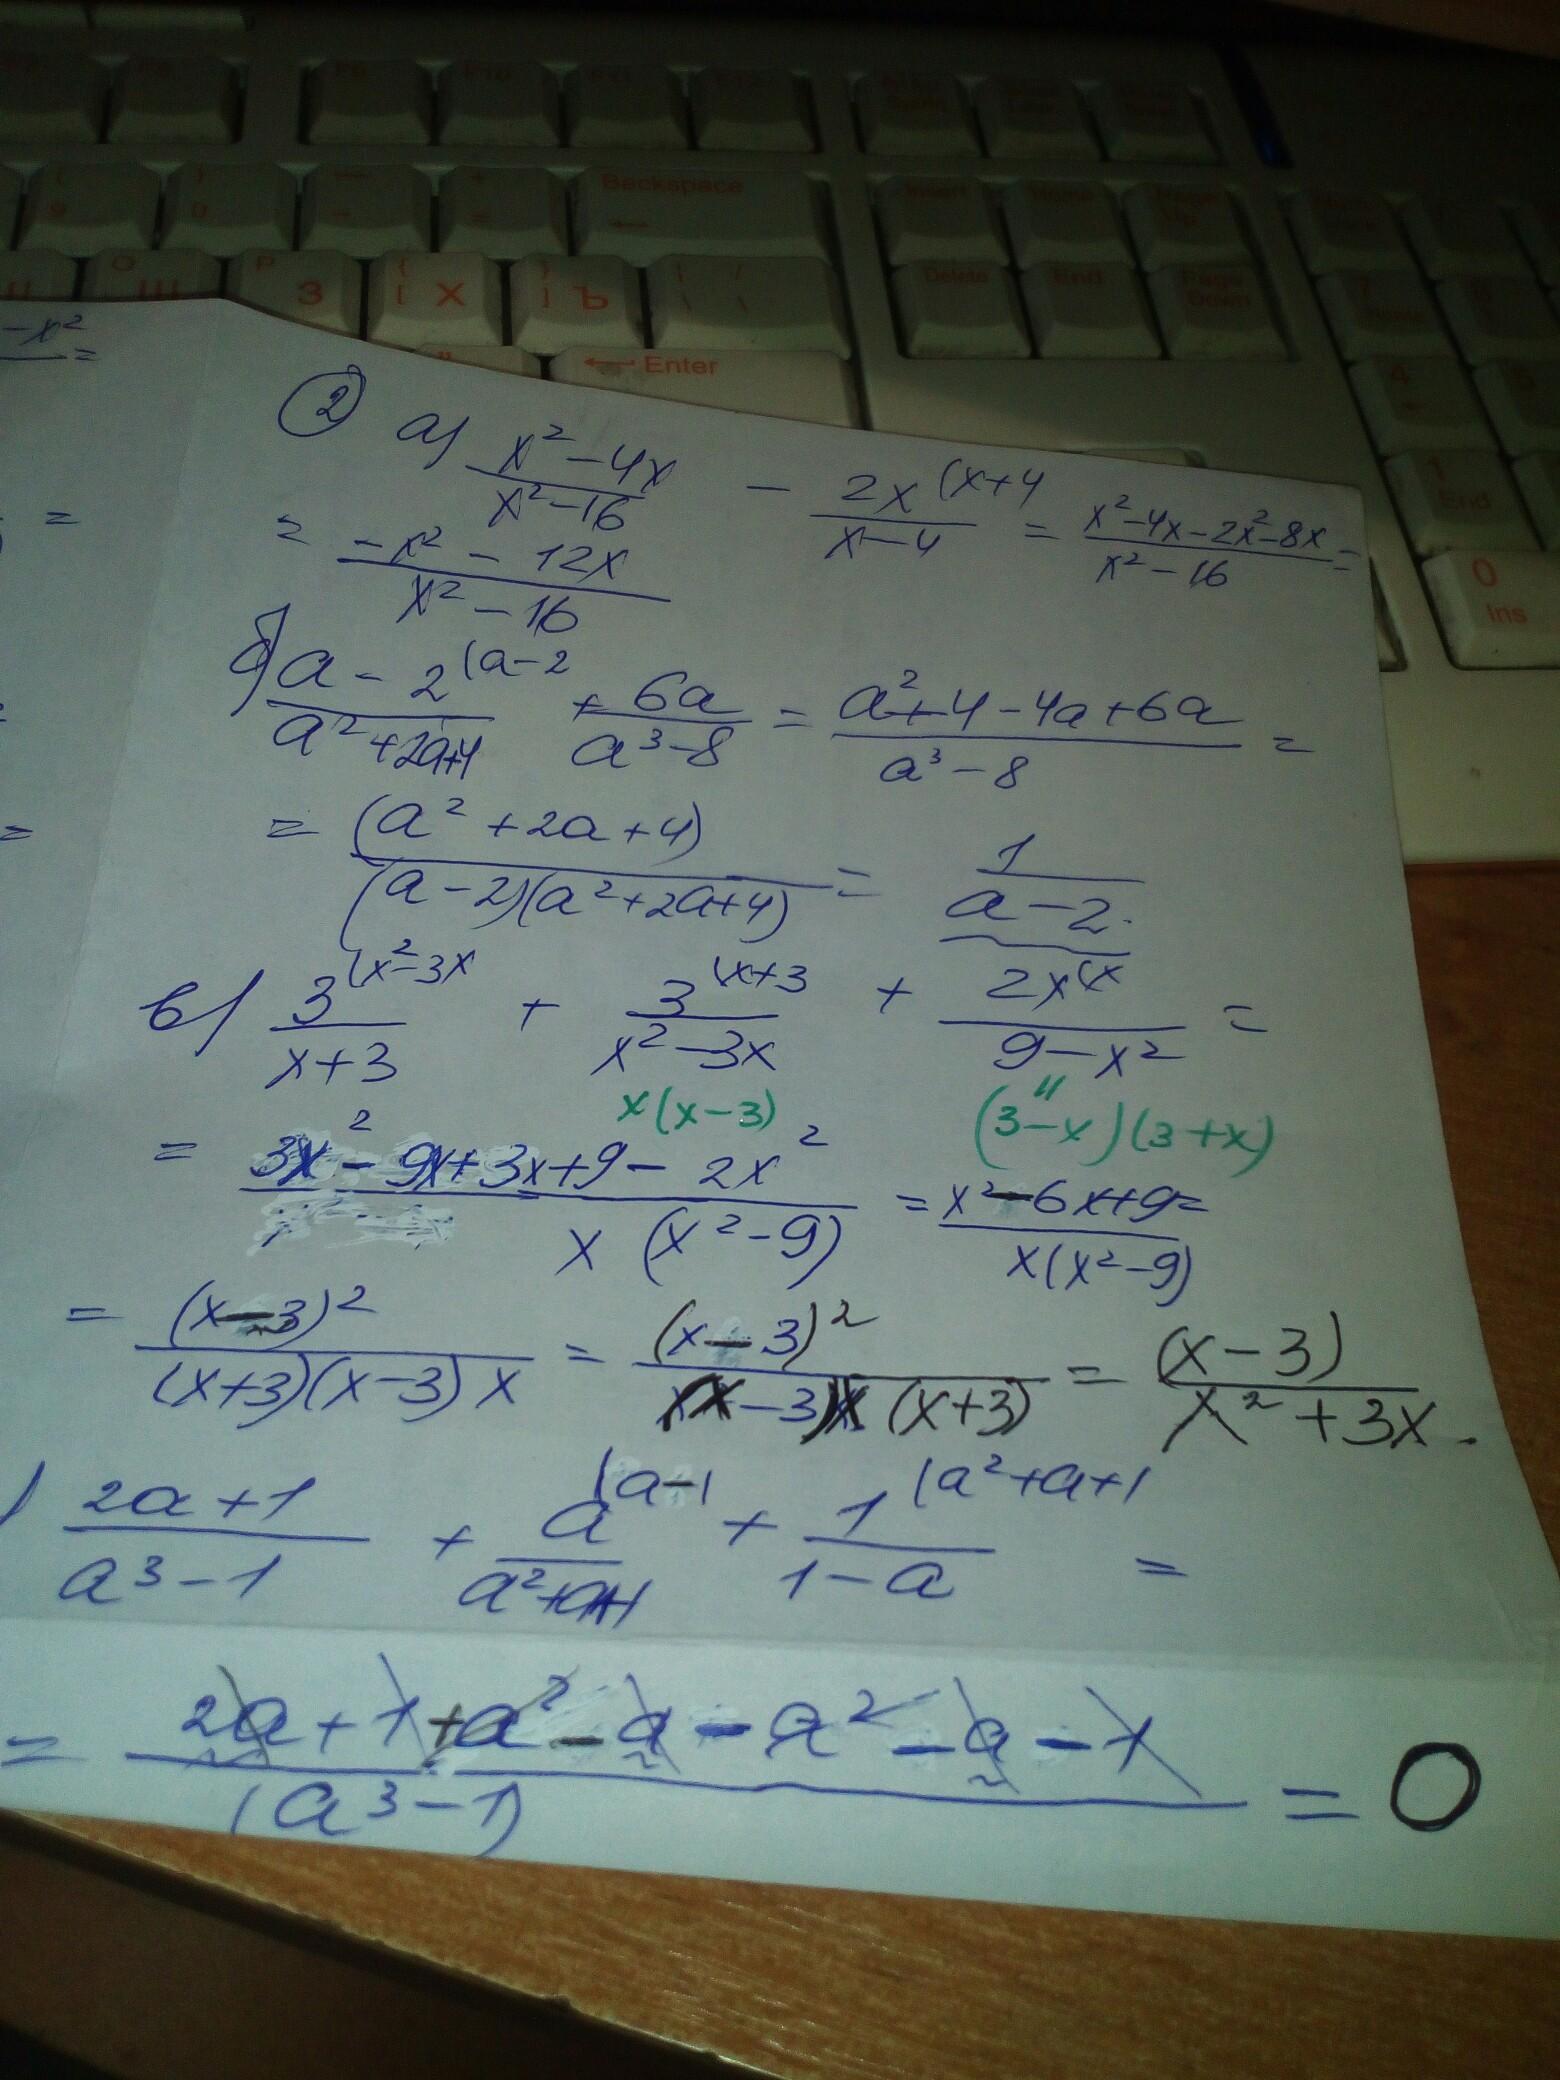 Backspace
Insert Home Page Up
Delete End Page Down
З Х Ъ
Enter
4
1 End
0 Ins
-x² =
=
=
② а) (x²-4x)/(x²-16) - 2x(x+4/(x-4) = (x²-4x-2x²-8x)/(x²-16) =
= (-x²-12x)/(x²-16)
б) a-2(a-2/(a²+2a+4) + 6a/(a³-8) = (a²+4-4a+6a)/(a³-8) =
= (a²+2a+4)/((a-2)(a²+2a+4)) = 1/(a-2).
в) 3(x²-3x/(x+3) + 3(x+3/(x²-3x) + 2x(x/(9-x²) =
x(x-3) " (3-x)(3+x)
= (3x²-9x+3x+9-2x²)/(x(x²-9)) = (x²-6x+9)/(x(x²-9)) =
= (x-3)²/((x+3)(x-3)x) = (x-3)²/((x-3)x(x+3)) = (x-3)/(x²+3x).
) (2a+1)/(a³-1) + a(a-1/(a²+a+1) + 1(a²+a+1/(1-a) =
= (2a+1+a²-a-a²-a-1)/(a³-1) = 0